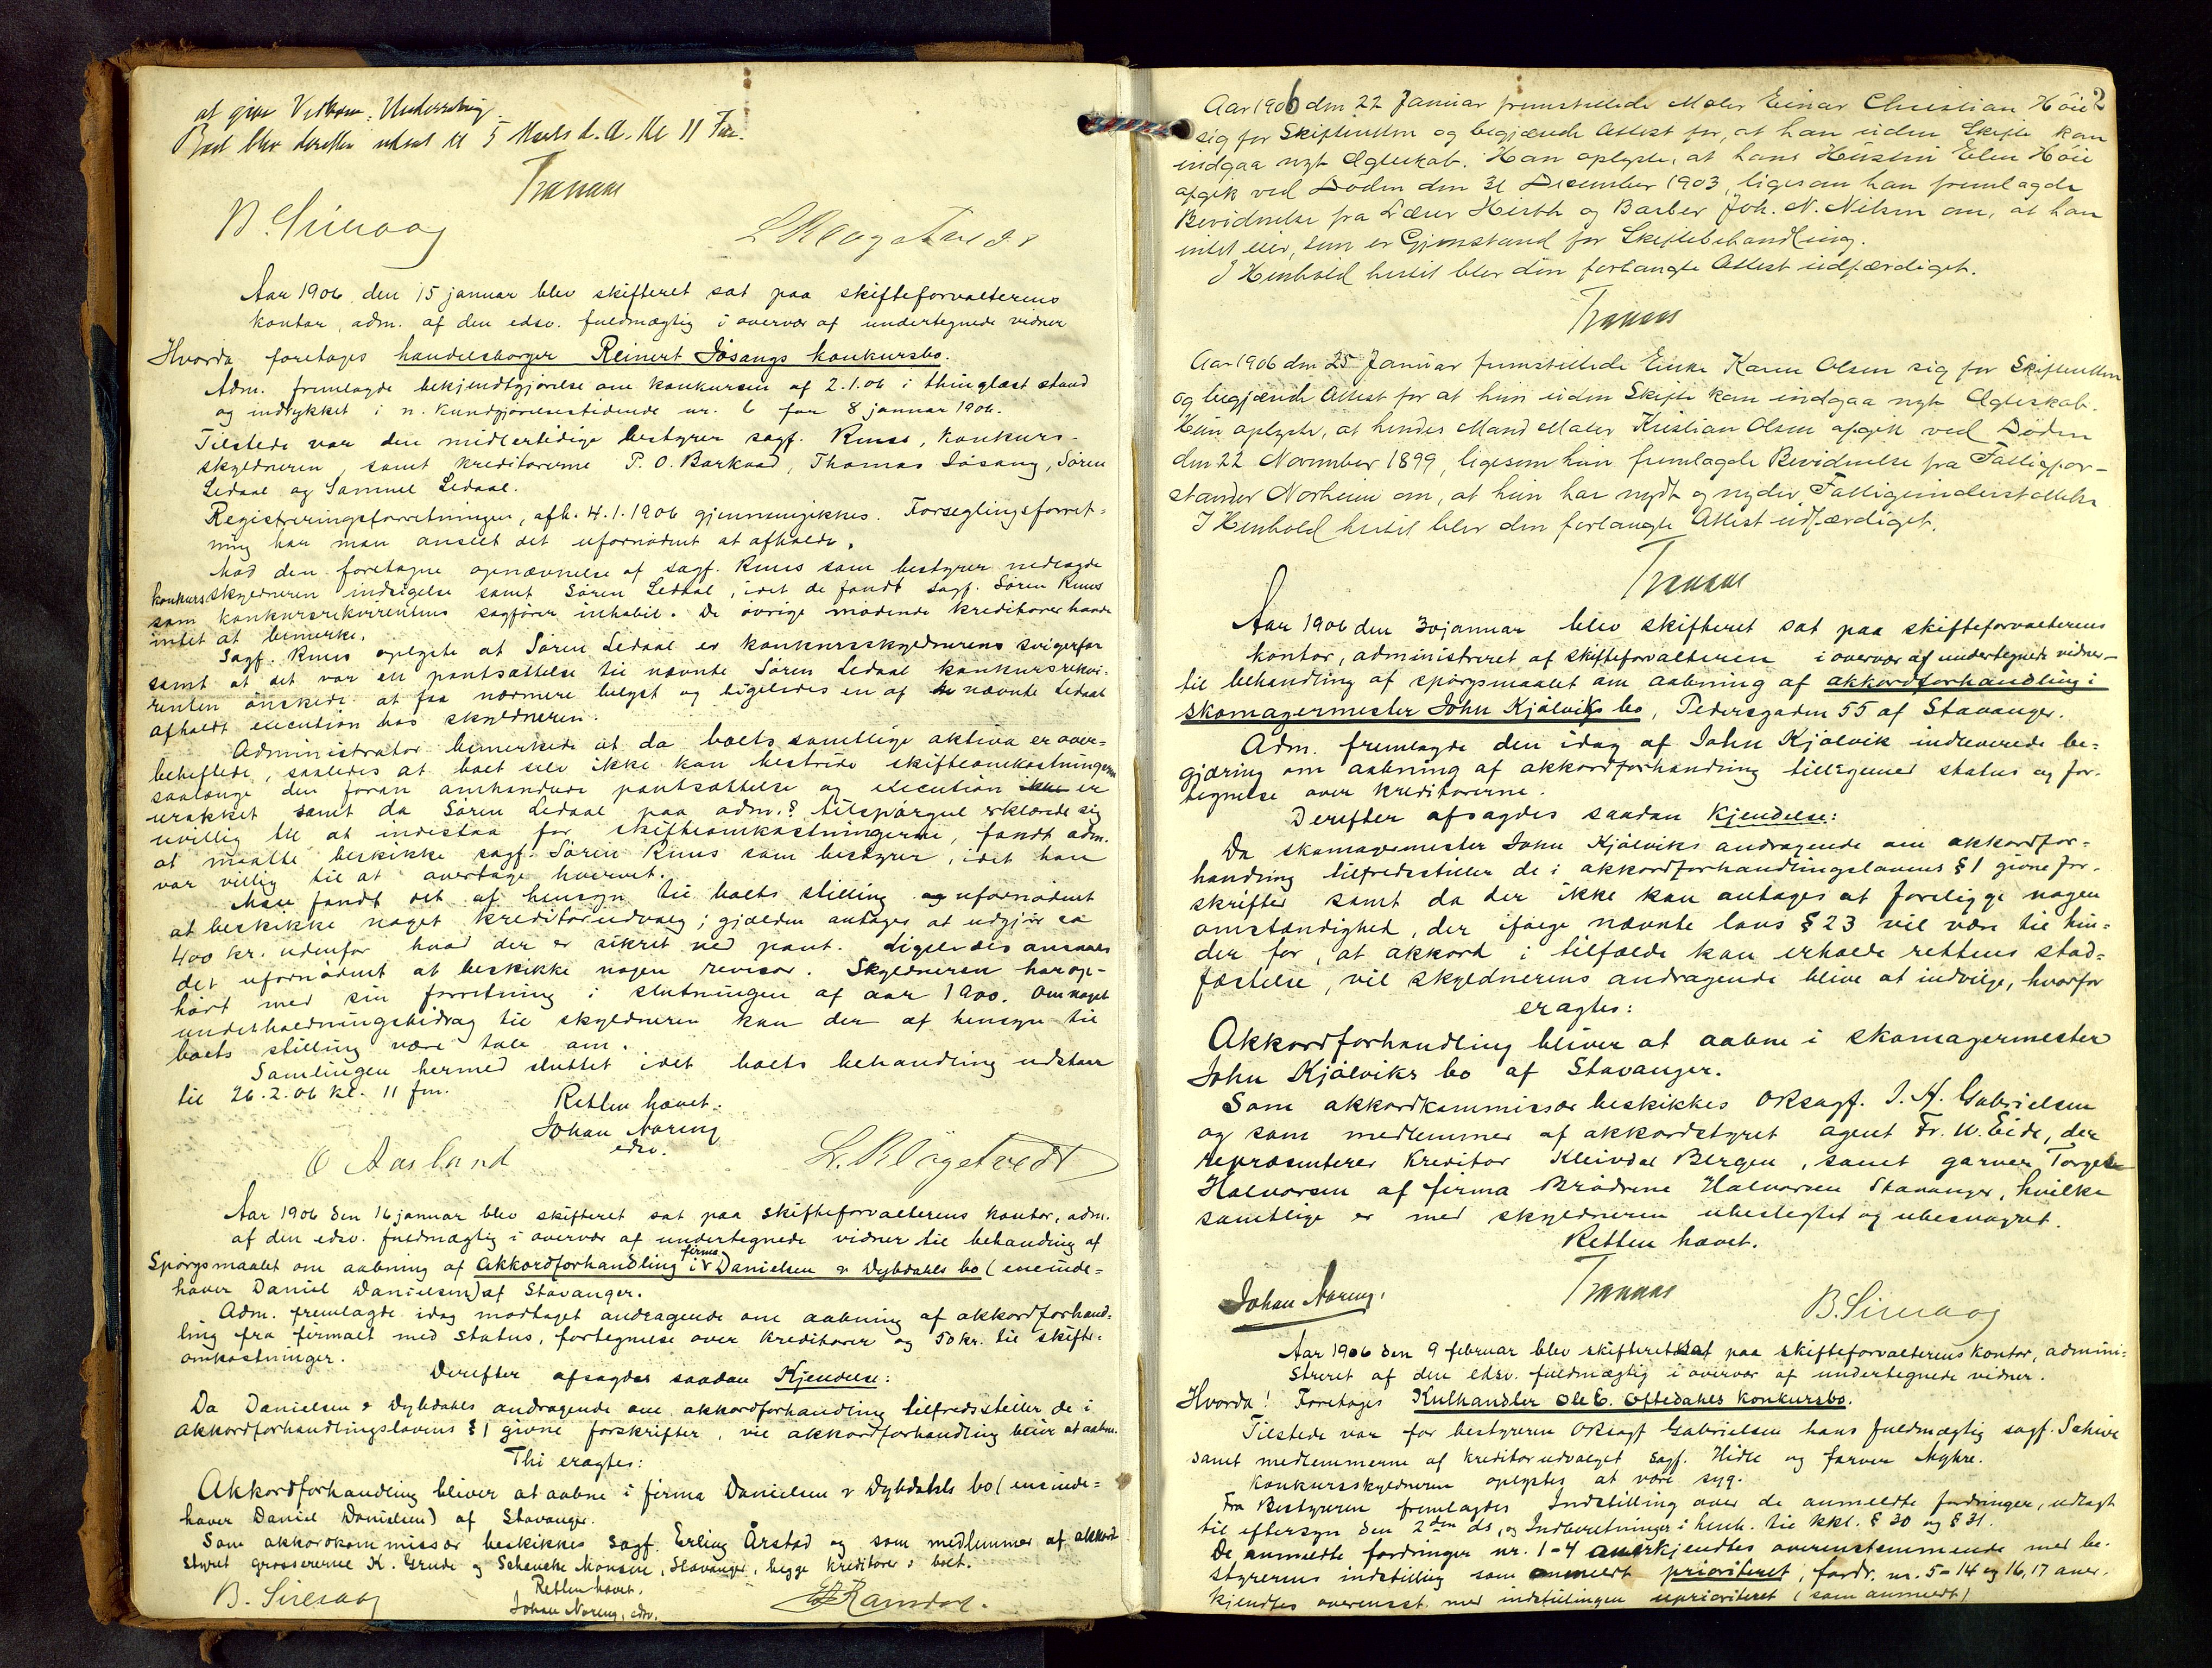 at give Vedkom. Underretning.
Boet blev derefter udsat til 5 Marts d. A. Kl 11 Fm.
Tranaas
B. Sireaag
L. Kløgetvedt
Aar 1906 den 15 januar blev skifteret sat paa skifteforvalterens
kontor, adm. af den edsv. fuldmægtig i overvær af undertegnede vidner
Hvorda foretoges handelsborger Reinert Jøsangs konkursbo.
Adm. fremlagde bekjendtgjørelse om konkursen af 2.1.06 i thinglæst stand
og indrykket i n. kundgjørelsestidende nr. 6 for 8 januar 1906.
Tilstede var den midlertidige bestyrer sagf. Kuus, konkurs-
skyldneren, samt kreditorerne P. O. Barkved, Thomas Jøsang, Søren
Ledaal og Samuel Ledaal.
Registreringsforretningen, afh. 4.1.1906 gjennemgikkes. Forseglingsforret-
ning har man anseet det ufornødent at afholde.
Mod den foretagne opnævnelse af sagf. Kuus som bestyrer nedlagde
konkursskyldneren indsigelse samt Søren Ledaal, idet de fandt sagf. Søren Kuus
som konkursrekvirentens sagfører inhabil. De øvrige mødende kreditorer havde
intet at bemerke.
Sagf. Kuus oplyste at Søren Ledaal er konkursskyldnerens svigerfar
samt at det var en pantsættelse til nævnte Søren Ledaal konkursrekvi-
renten ønskede at faa nærmere belyst og ligeledes en af nævnte Ledaal
afholdt execution hos skyldneren.
Administrator bemerkede at da boets samtlige aktiva er over-
beheftede, saaledes at boet selv ikke kan bestride skifteomkostningerne
saalænge den foran omhandlede pantsættelse og execution er
urokket samt da Søren Ledaal paa adm.s tilspørgsel erklærede sig
uvillig til at indestaa for skifteomkostningerne, fandt adm.
at maatte beskikke sagf. Søren Kuus som bestyrer, idet han
var villig til at overtage hvervet.
Man fandt det af hensyn til boets stilling ufornødent
at beskikke noget kreditorudvalg; gjælden antages at udgjør ca
400 kr. udenfor hvad der er sikret ved pant. Ligeledes ansaaes
det ufornødent at beskikke nogen revisor. Skyldneren har op-
hørt med sin forretning i slutningen af aar 1900. Om noget
underholdningsbidrag til skyldneren kan der af hensyn til
boets stilling være tale om.
Samlingen hermed sluttet idet boets behandling udstaar
til 26.2.06 kl. 11 fm.
Retten hævet.
Johan Noreng
edsv.
O Aasland
L. Kløgetvedt
Aar 1906 den 16 januar blev skifteret sat paa skifteforvalterens kontor, adm.
af den edsv. fuldmægtig i overvær af undertegnede vidner til behandling af
Spørgsmaalet om aabning af akkordforhandling i firma Danielsen & Dybdahls bo (eneinde-
haver Daniel Danielsen) af Stavanger.
Adm. fremlagde idag modtaget andragende om aabning af akkordforhand-
ling fra firmaet med status, fortegnelse over kreditorer og 50 kr. til skifte-
omkostninger.
Derefter afsagdes saadan Kjendelse:
Da Danielsen & Dybdahls andragende om akkordforhandling tilfredsstiller de i
akkordforhandlingslovens § 1 givne forskrifter, vil akkordforhandling blive at aabne.
Thi eragtes:
Akkordforhandling bliver at aabne i firma Danielsen & Dybdahls bo (eneinde-
haver Daniel Danielsen) af Stavanger.
Som akkordkommissær beskikkes sagf. Erling Årstad og som medlemmer af akkord-
styret grossererne K. Grude og Schencke Monsen, Stavanger, begge kreditorer i boet.
Retten hævet.
B. Sireaag
Johan Noreng, edsv.
Ramsdal.
2
Aar 1906 den 22 Januar fremstillede Maler Einar Christian Høie
sig for Skifteretten og begjærede Attest for, at han uden Skifte kan
indgaa nyt Ægteskab. Han oplyste, at hans Hustru Elen Høie
afgik ved Døden den 31 December 1903, ligesom han fremlagde
Bevidnelse fra Lærer Hirth og Barber Joh. N. Nilsen om, at han
intet eier, som er Gjenstand for Skiftebehandling.
I Henhold hertil blev den forlangte Attest udfærdiget.
Tranaas
Aar 1906 den 25 Januar fremstillede Enke Karen Olsen sig for Skifteretten
og begjærede Attest for at hun uden Skifte kan indgaa nyt Ægteskab.
Hun oplyste, at hendes Mand Maler Kristian Olsen afgik ved Døden
den 22 November 1899, ligesom hun fremlagde Bevidnelse fra Fattigfor-
stander Norheim om, at hun har nydt og nyder Fattigunderstøttelse
I Henhold hertil blev den forlangte Attest udfærdiget.
Tranaas
Aar 1906 den 30 januar blev skifteret sat paa skifteforvalterens
kontor, administreret af skifteforvalteren i overvær af undertegnede vidner
til behandling af spørgsmaalet om aabning af akkordforhandling i
skomagermester John Kjølviks bo, Pedersgaden 55 af Stavanger.
Adm. fremlagde den idag af John Kjølvik indleverede be-
gjæring om aabning af akkordforhandling tilligemed status og for-
tegnelse over kreditorerne.
Derefter afsagdes saadan Kjendelse:
Da skomagermester John Kjølviks andragende om akkordfor-
handling tilfredsstiller de i akkordforhandlingslovens § 1 givne for-
skrifter samt da der ikke kan antages at foreligge nogen
omstændighed, der ifølge nævnte lovs § 23 vil være til hin-
der for, at akkord i tilfælde kan erholde rettens stad-
fæstelse, vil skyldnerens andragende blive at indvilge, hvorfor
eragtes:
Akkordforhandling bliver at aabne i skomagermester
John Kjølviks bo af Stavanger.
Som akkordkommissær beskikkes OKsagf. I. H. Gabrielsen
og som medlemmer af akkordstyret agent Fr. W. Eide, der
repræsenterer kreditor Kleivdal Bergen, samt garver Torger
Halvorsen af firma Brødrene Halvorsen Stavanger, hvilke
samtlige er med skyldneren ubeslegtet og ubesvogret.
Retten hævet.
Johan Noreng.
Tranaas
B. Sireaag
Aar 1906 den 9 februar blev skifteret sat paa skifteforvalterens kontor, admini-
streret af den edsv. fuldmægtig i overvær af undertegnede vidner.
Hvorda! Foretoges Kulhandler Ole E. Oftedahls konkursbo.
Tilstede var for bestyreren OKsagf Gabrielsen hans fuldmægtig sagf. Schiøe
samt medlemmerne af kreditorudvalget sagf. Hidle og farver Myhre.
Konkursskyldneren oplystes at være syg.
Fra Bestyreren fremlagdes Indstilling over de anmeldte fordringer, udlagt
til eftersyn den 2den ds, og Indberetninger i henh. til kkl. § 30 og § 31.
De anmeldte fordringer nr. 1-4 anerkjendtes overensstemmende med be-
styrerens indstilling som anmeldt prioriteret, fordr. nr. 5-14 og 16, 17 aner-
kjendtes overensst. med indstillingen uprioriteret (som anmeldt)